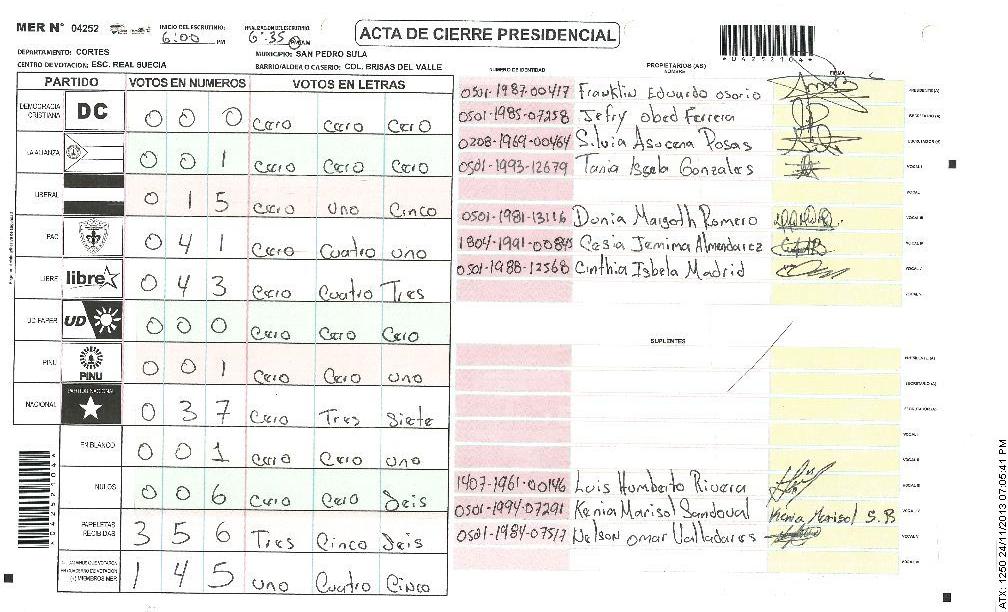 MER N° 04252
INICIO DEL ESCRUTINIO: 6:00 PM
FINALIZACION DEL ESCRUTINIO: 6:35
ACTA DE CIERRE PRESIDENCIAL
DEPARTAMENTO: CORTES
MUNICIPIO: SAN PEDRO SULA
CENTRO DE VOTACION: ESC. REAL SUECIA
BARRIO/ALDEA O CASERIO: COL. BRISAS DEL VALLE
*UA252104*
PARTIDO VOTOS EN NUMEROS VOTOS EN LETRAS
DEMOCRACIA CRISTIANA DC 0 0 0 Cero Cero Cero
LA ALIANZA 0 0 1 Cero Cero Cero
LIBERAL 0 1 5 Cero Uno Cinco
PAC 0 4 1 Cero Cuatro uno
LIBRE libre 0 4 3 Cero Cuatro Tres
UD FAPER UD 0 0 0 Cero Cero Cero
PINU PINU 0 0 1 Cero Cero uno
NACIONAL PARTIDO NACIONAL 0 3 7 Cero Tres Siete
EN BLANCO 0 0 1 Cero Cero uno
NULOS 0 0 6 Cero Cero Seis
PAPELETAS RECIBIDAS 3 5 6 Tres Cinco Seis
(+) MIEMBROS MER 1 4 5 uno Cuatro Cinco
NUMERO DE IDENTIDAD PROPIETARIOS (AS) NOMBRE FIRMA
0501-1987-00417 Franklin Eduardo osorio PRESIDENTE(A)
0501-1985-07258 Jefry obed Ferrera SECRETARIO(A)
0208-1969-00464 Silvia Asucena Posas ESCRUTADOR(A)
0501-1993-12679 Tania Isela Gonzales VOCAL I
VOCAL II
0501-1981-13116 Dunia Margoth Romero VOCAL III
1804-1991-00845 Cesia Jemima Almendarez VOCAL IV
0501-1988-12568 Cinthia Isbela Madrid VOCAL V
SUPLENTES
PRESIDENTE (A)
SECRETARIO (A)
ESCRUTADOR (A)
VOCAL I
VOCAL II
1407-1961-00146 Luis Humberto Rivera VOCAL III
0501-1994-07291 Kenia Marisol Sandoval Kenia Marisol S.B
0501-1984-07517 Nelson omar Valladares VOCAL V
ATX: 1250 24/11/2013 07:05:41 PM